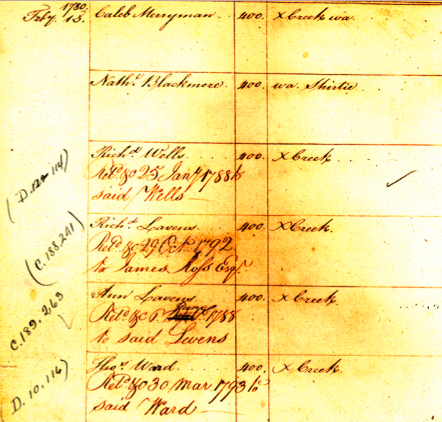 1780
Feby. 15. Caleb Merryman 400. X Creek wa.
Nathl. Blackmore 400. wa. Shirtie
Richd. Wells 400. X Creek
Retd. &c 25 Jany 1788 to
said Wells
(D.122 114)
Richd. Lavens 400. X Creek.
Retd. &c 29 Oct. 1792
to James Ross Esqr.
(C.188.241)
Ann Lavens 400. X Creek.
Retd. &c 6 1788
to said Levens
C.189.263
Thos. Ward 400. X Creek.
Retd. &c 30 Mar 1793 to
said Ward
D.10.116)